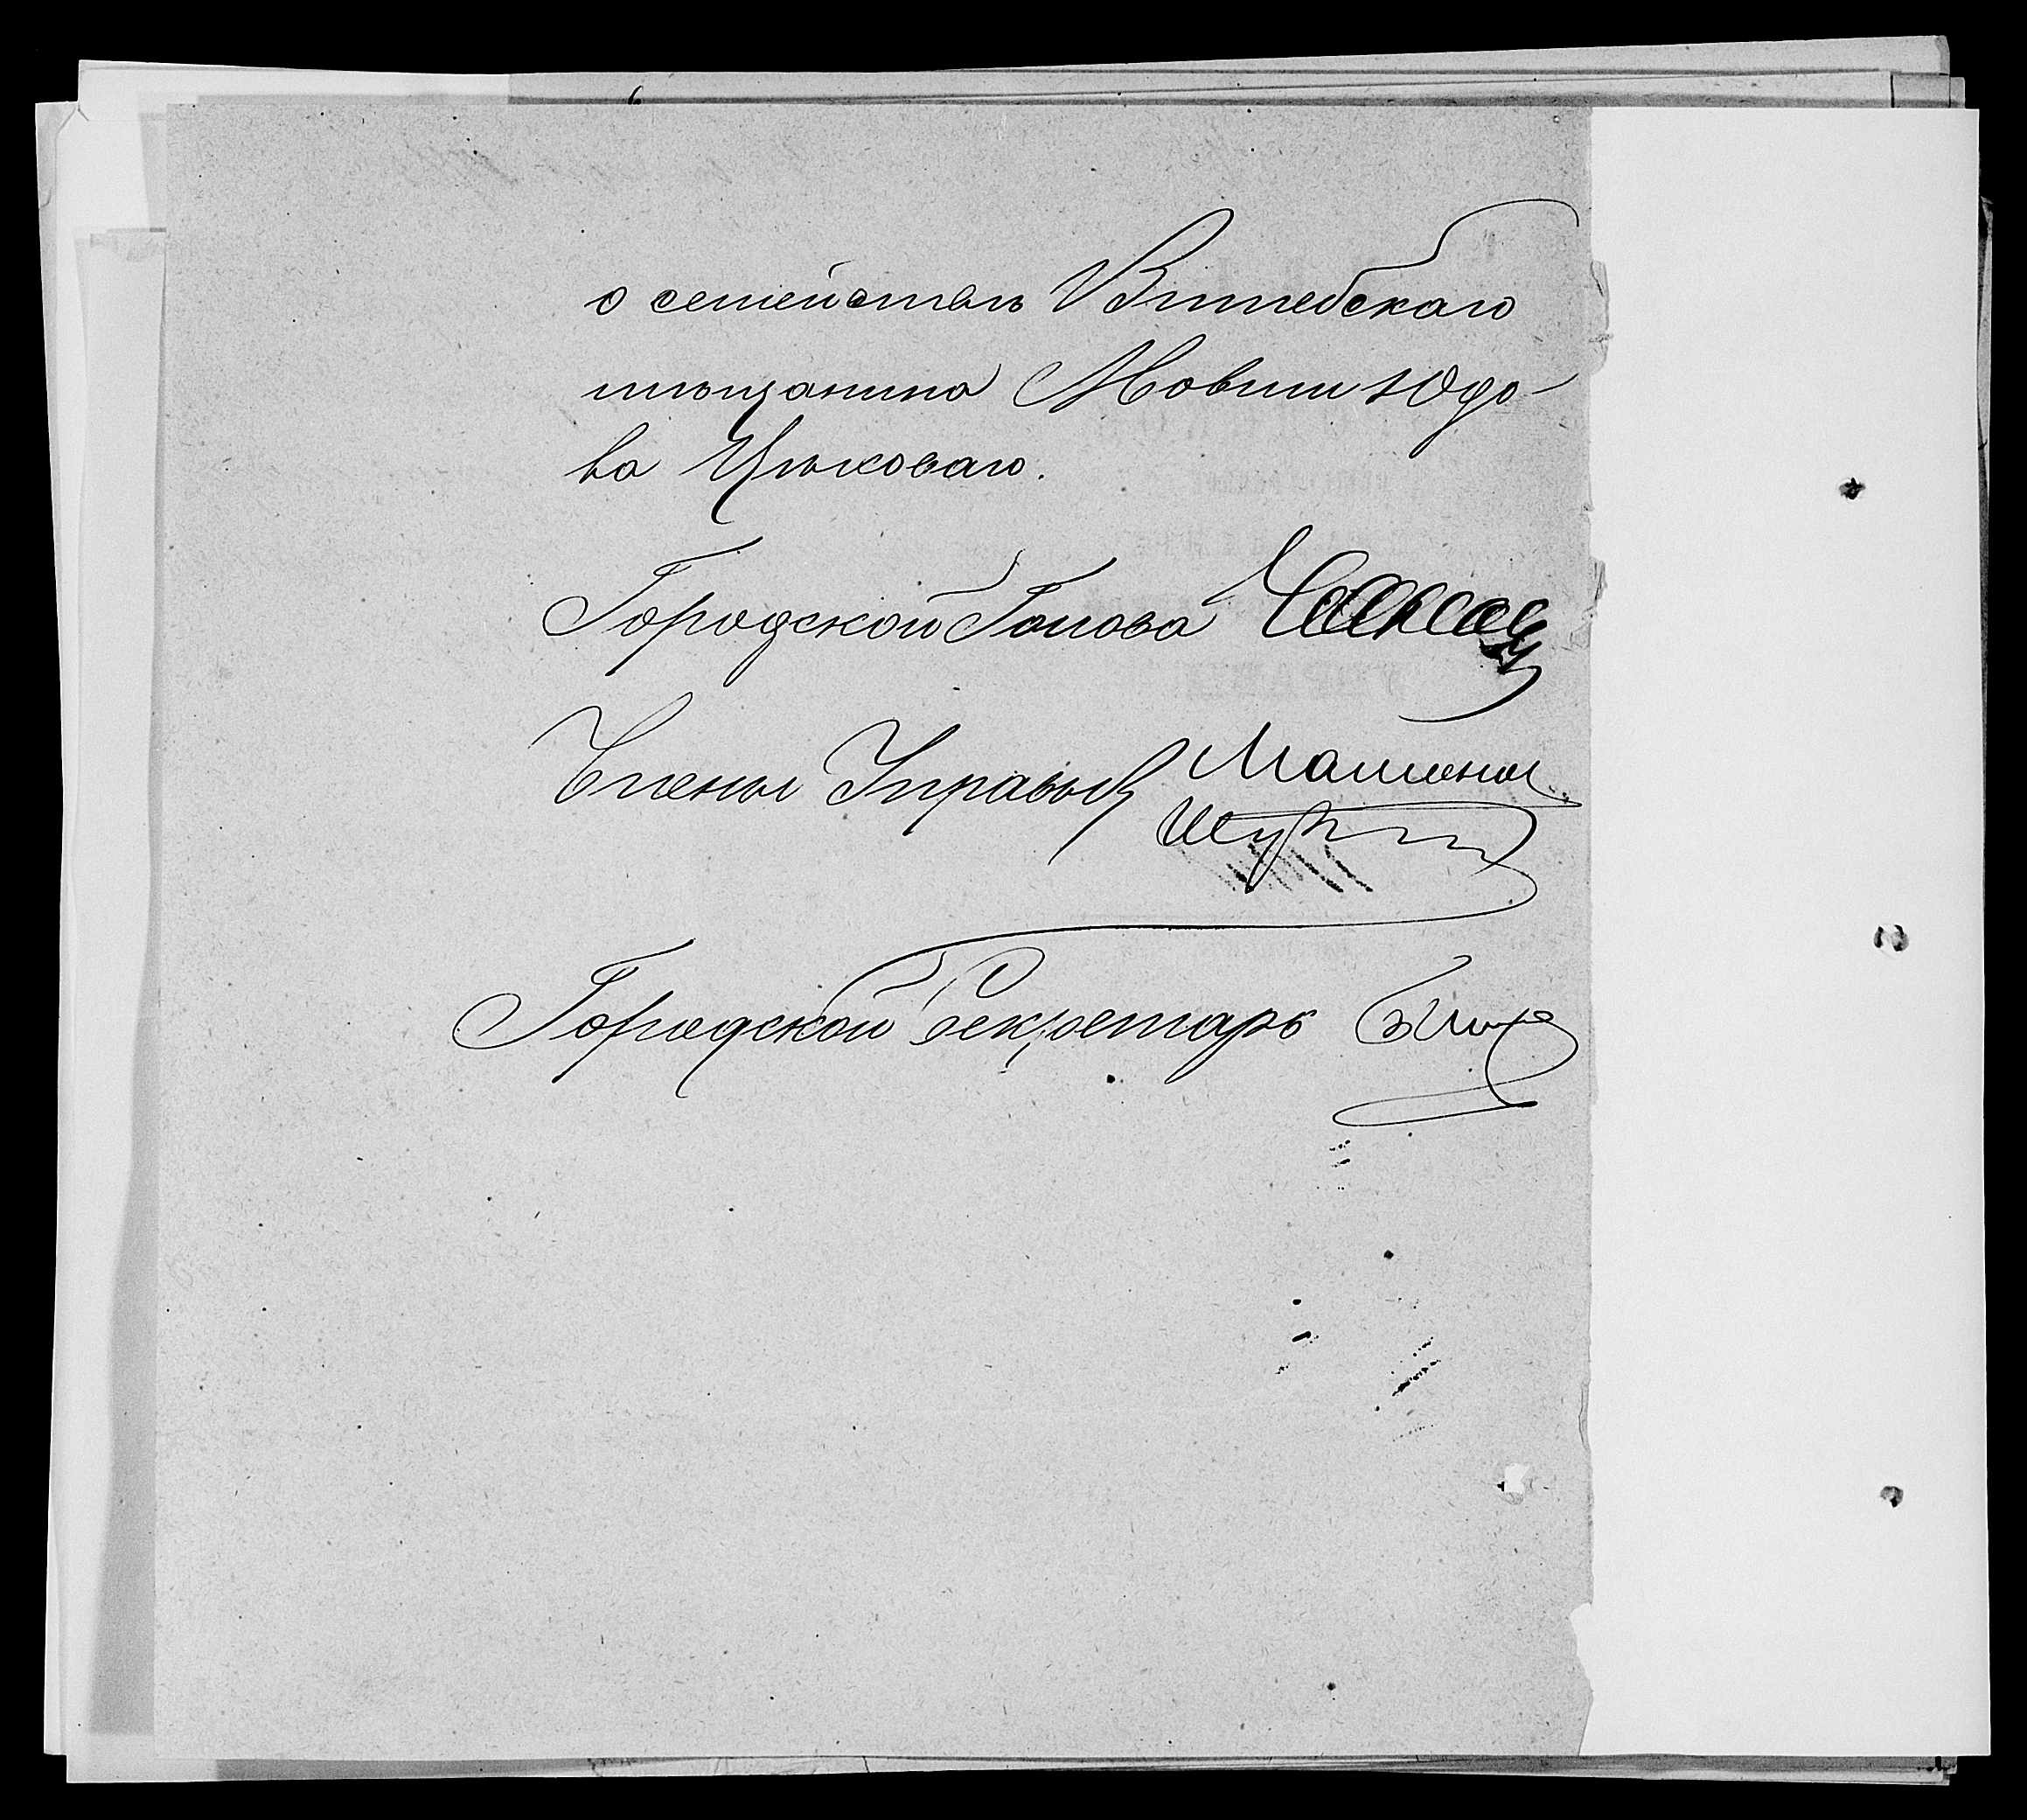 о семействѣ Витебскаго
мѣщанина Мовши Юдо-
ва Цыковаго.
Городской Голова
Члены Управы
Городской Секретарь